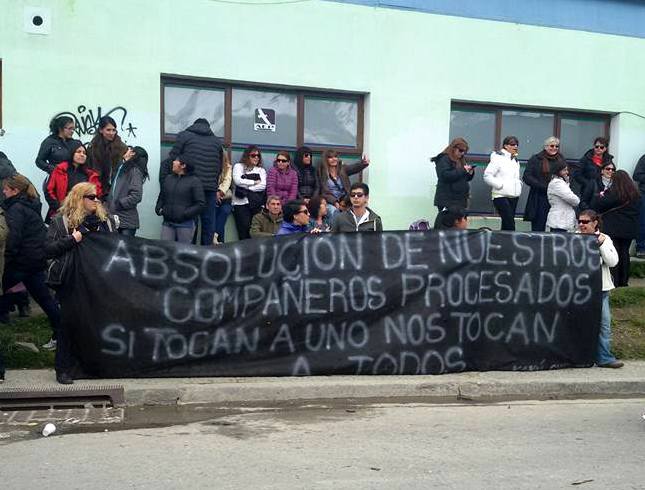 ABSOLUCION DE NUESTROS
COMPAÑEROS PROCESADOS
SI TOCAN A UNO NOS TOCAN
A TODOS